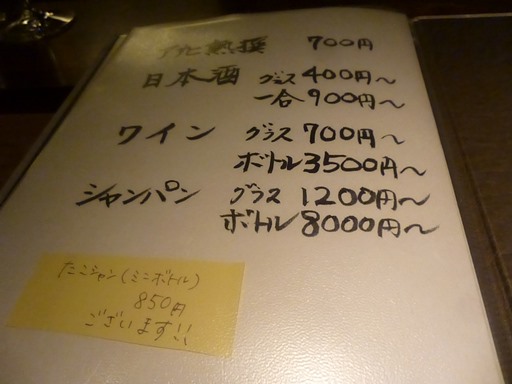 700円
日本酒 グラス 400円〜
一合 900円〜
ワイン グラス 700円〜
ボトル 3500円〜
シャンパン グラス 1200円〜
ボトル 8000円〜
たこシャン(ミニボトル)
850円
ございます!!